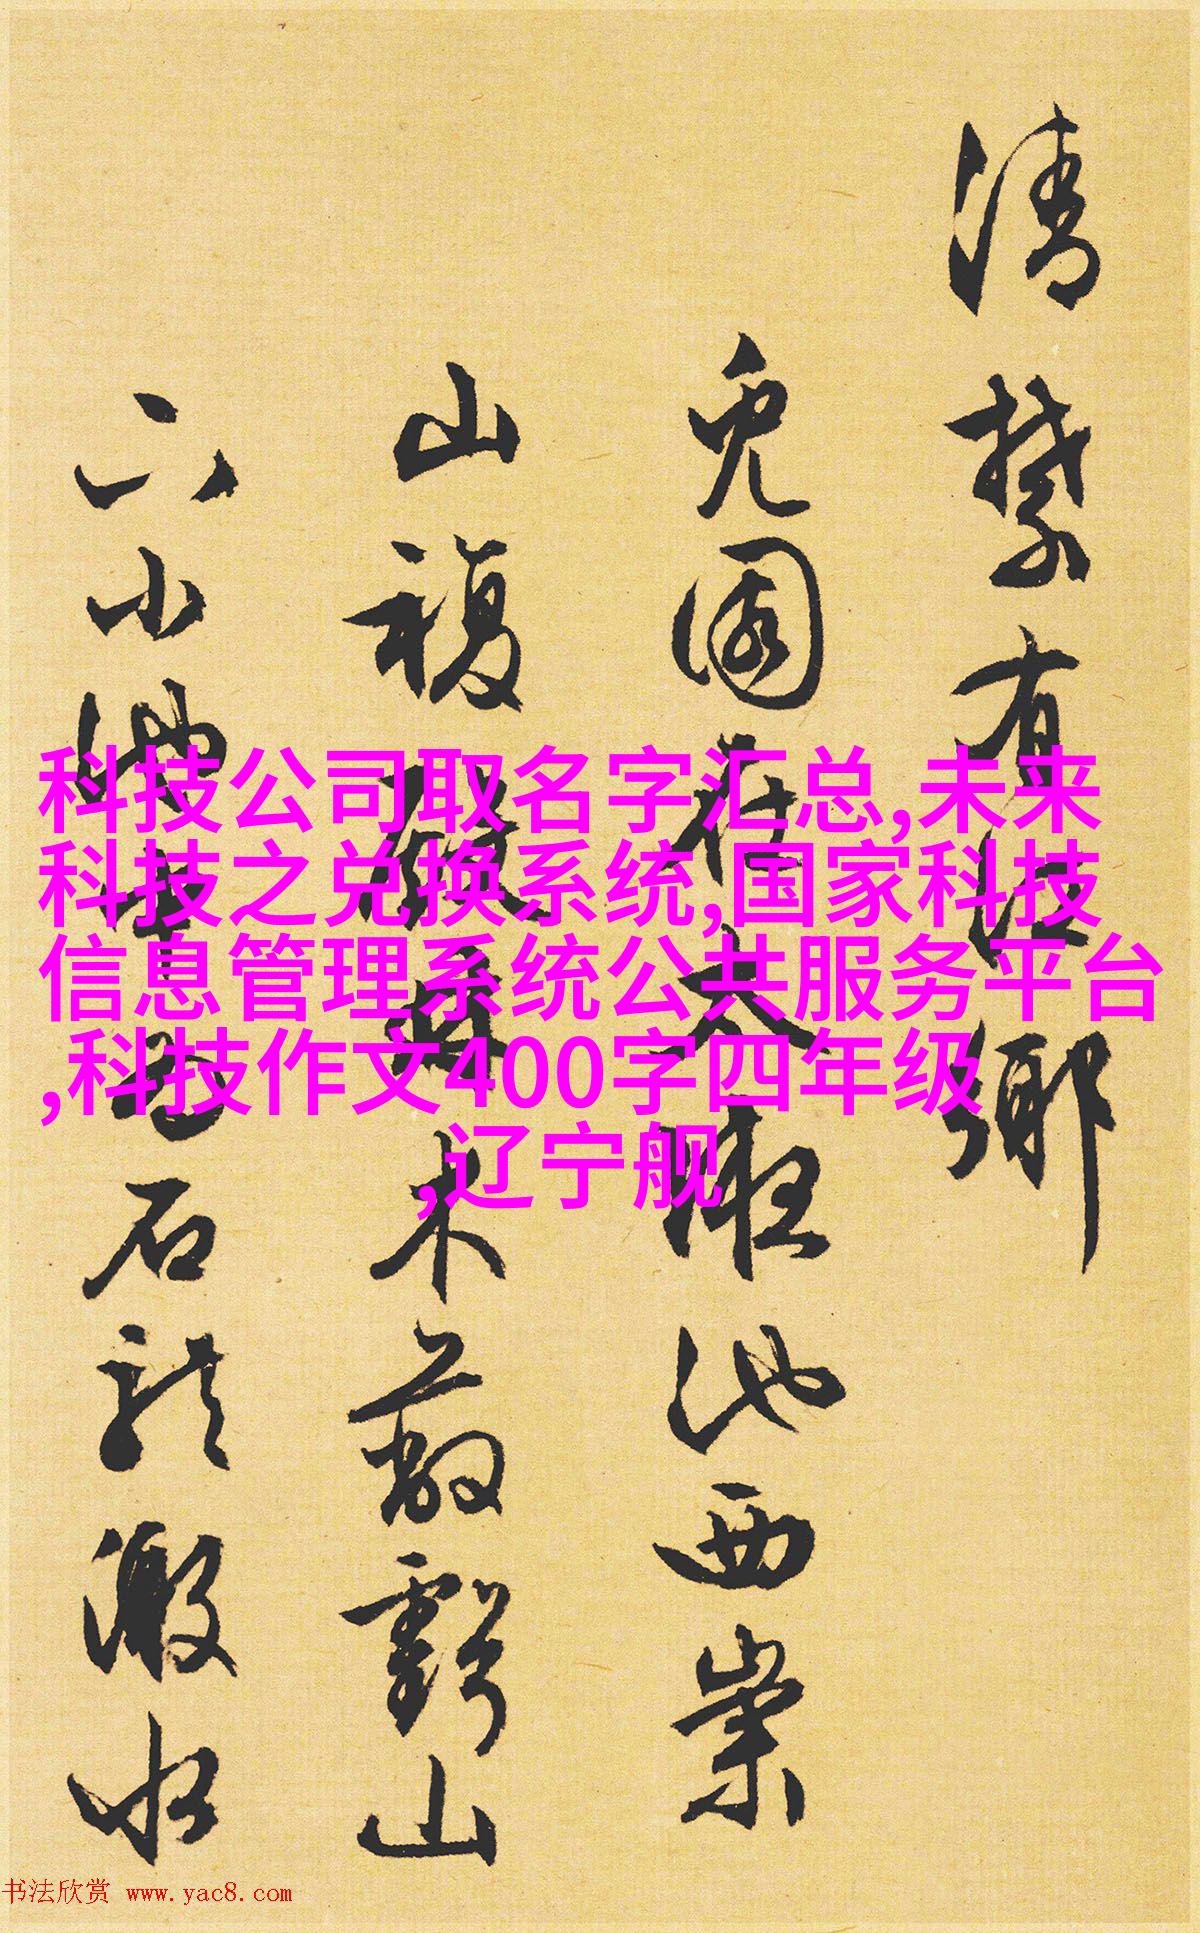 清禁有江鄉
兔園在太液池西崇
山複磴喬木蔽虧山
下小池
石龍激水
科技公司取名字汇总,未来
科技之兑换系统,国家科技
信息管理系统公共服务平台
,科技作文400字四年级
,辽宁舰
书法欣赏 www.yac8.com